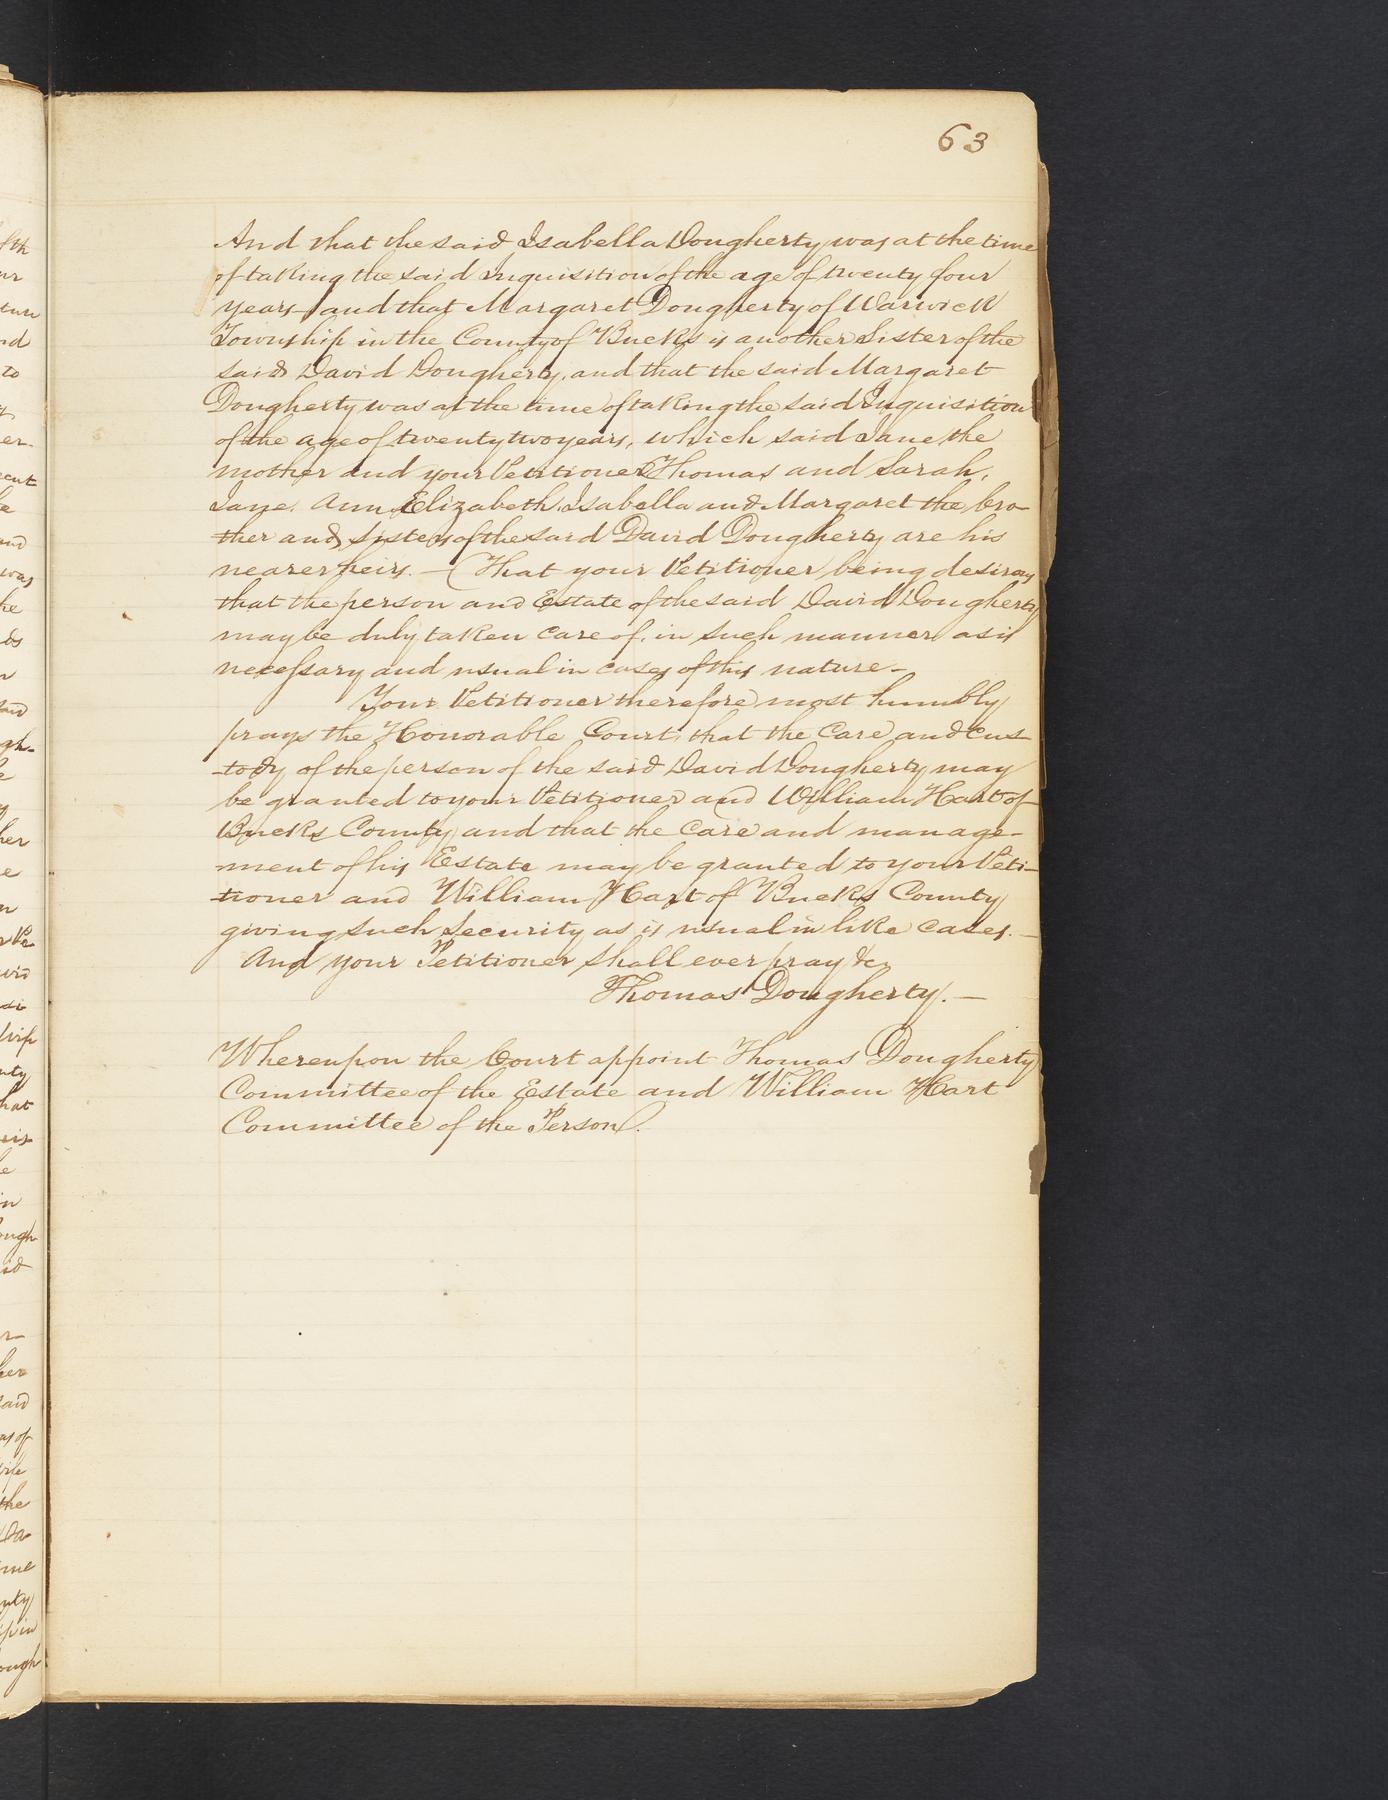 63
And that the said Isabella Dougherty was at the time
of taking the said Inquisition of the age of twenty four
years, and that Margaret Dougherty of Warwick
Township in the County of Bucks is another Sister of the
said David Dougherty, and that the said Margaret
Dougherty was at the time of taking the said Inquisition
of the age of twenty two years, which said Jane the
mother and your Petitioner Thomas and Sarah,
Jane, Ann, Elizabeth, Isabella and Margaret the bro-
ther and sisters of the said David Dougherty are his
nearer heirs. — That your Petitioner being desirous
that the person and Estate of the said David Dougherty
may be duly taken care of, in such manner as is
necessary and usual in cases of this nature —
Your Petitioner therefore most humbly
prays the Honorable Court, that the Care and Cus-
tody of the person of the said David Dougherty may
be granted to your Petitioner and William Hart of
Bucks County and that the Care and manage-
ment of his Estate may be granted to your Peti-
tioner and William Hart of Bucks County
giving such Security as is usual in like Cases. —
And your Petitioner shall ever pray &c
Thomas Dougherty. —
Whereupon the Court appoint Thomas Dougherty
Committee of the Estate and William Hart
Committee of the Person.